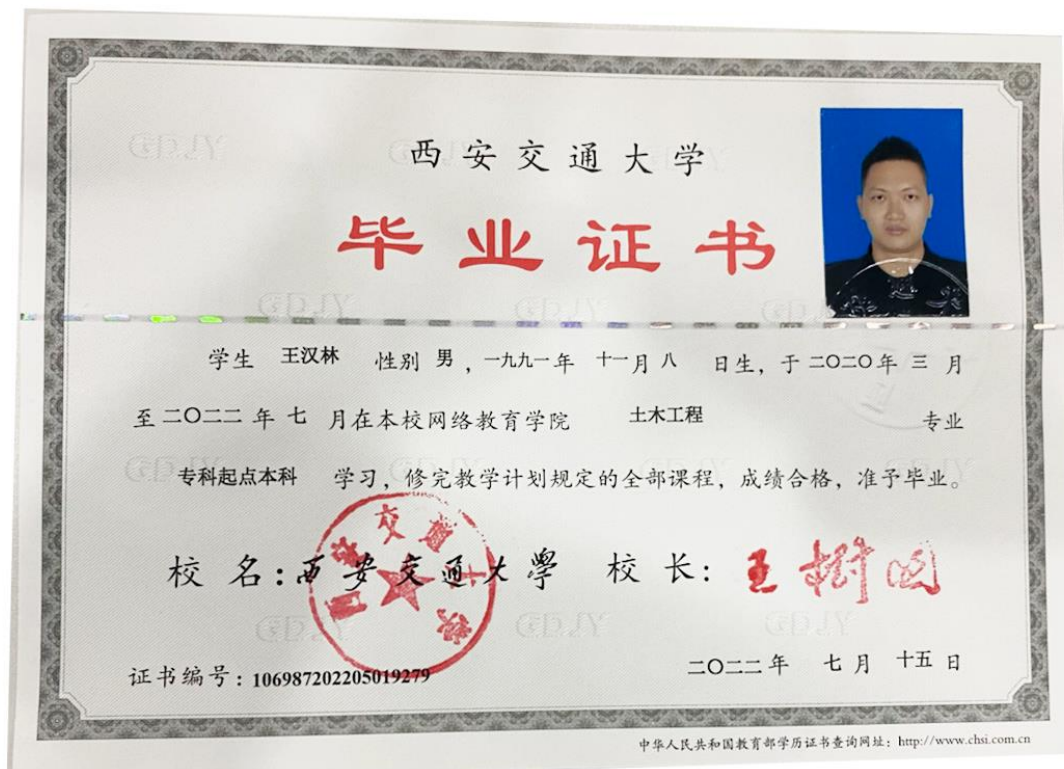 西安交通大学
毕业证书
学生 王汉林 性别 男，一九九一年 十一月 八 日生，于 二〇二〇年 三 月
至 二〇二二 年 七 月在本校网络教育学院 土木工程 专业
专科起点本科 学习，修完教学计划规定的全部课程，成绩合格，准予毕业。
校 名：西安交通大學 校 长：王树国
证书编号：106987202205019279 二〇二二年 七月 十五日
中华人民共和国教育部学历证书查询网址：http://www.chsi.com.cn